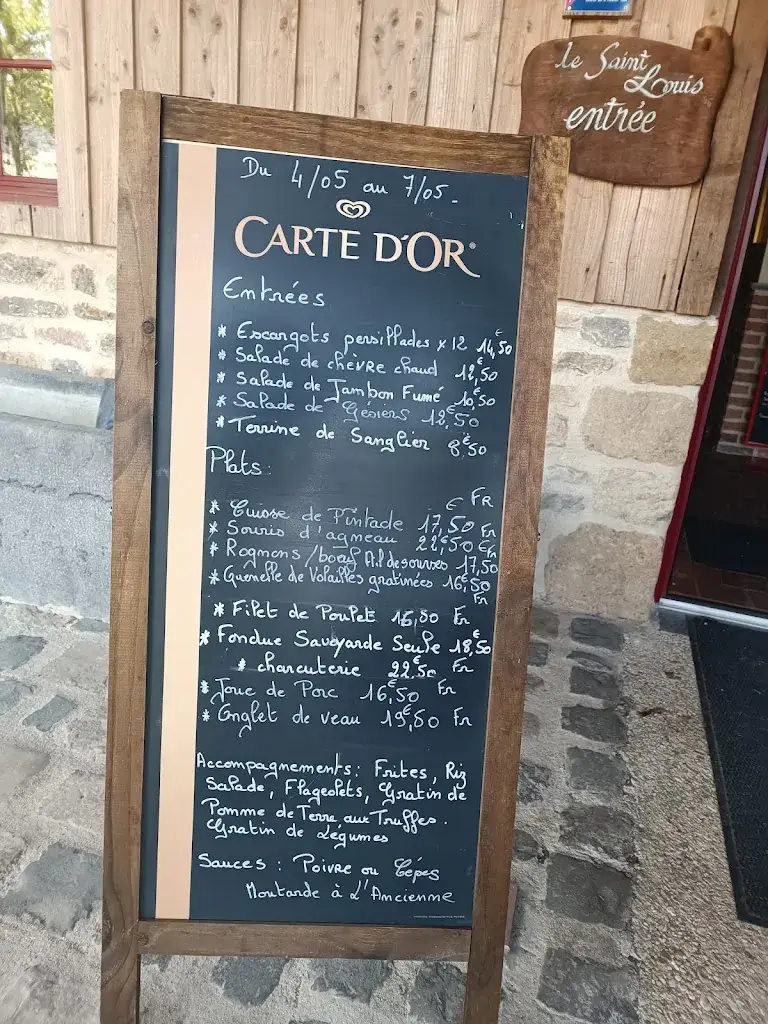 le Saint
Louis
entrée
Du 4/05 au 7/05.
CARTE D'OR
Entrées
* Escargots persillades x 12 14,50 €
* Salade de chèvre chaud 12,50 €
* Salade de Jambon Fumé 10,50 €
* Salade de Gésiers 12,50 €
* Terrine de Sanglier 8,50 €
Plats:
* Cuisse de Pintade 17,50 € FR
* Souris d'agneau 22,50 € Fr
* Rognons/boeuf 17,50 € Fr
* Quenelle de Volailles gratinées 16,50 Fr
* Filet de Poulet 16,50 Fr
* Fondue Savoyarde Seule 18,50 €
* charcuterie 22,50 € Fr
* Joue de Porc 16,50 € Fr
* Onglet de veau Fr
Accompagnements: Frites, Riz
Salade, Flageolets, Gratin de
Pomme de Terre aux Truffes.
Gratin de Légumes
Sauces : Poivre ou Cépes
Moutarde à L'Ancienne